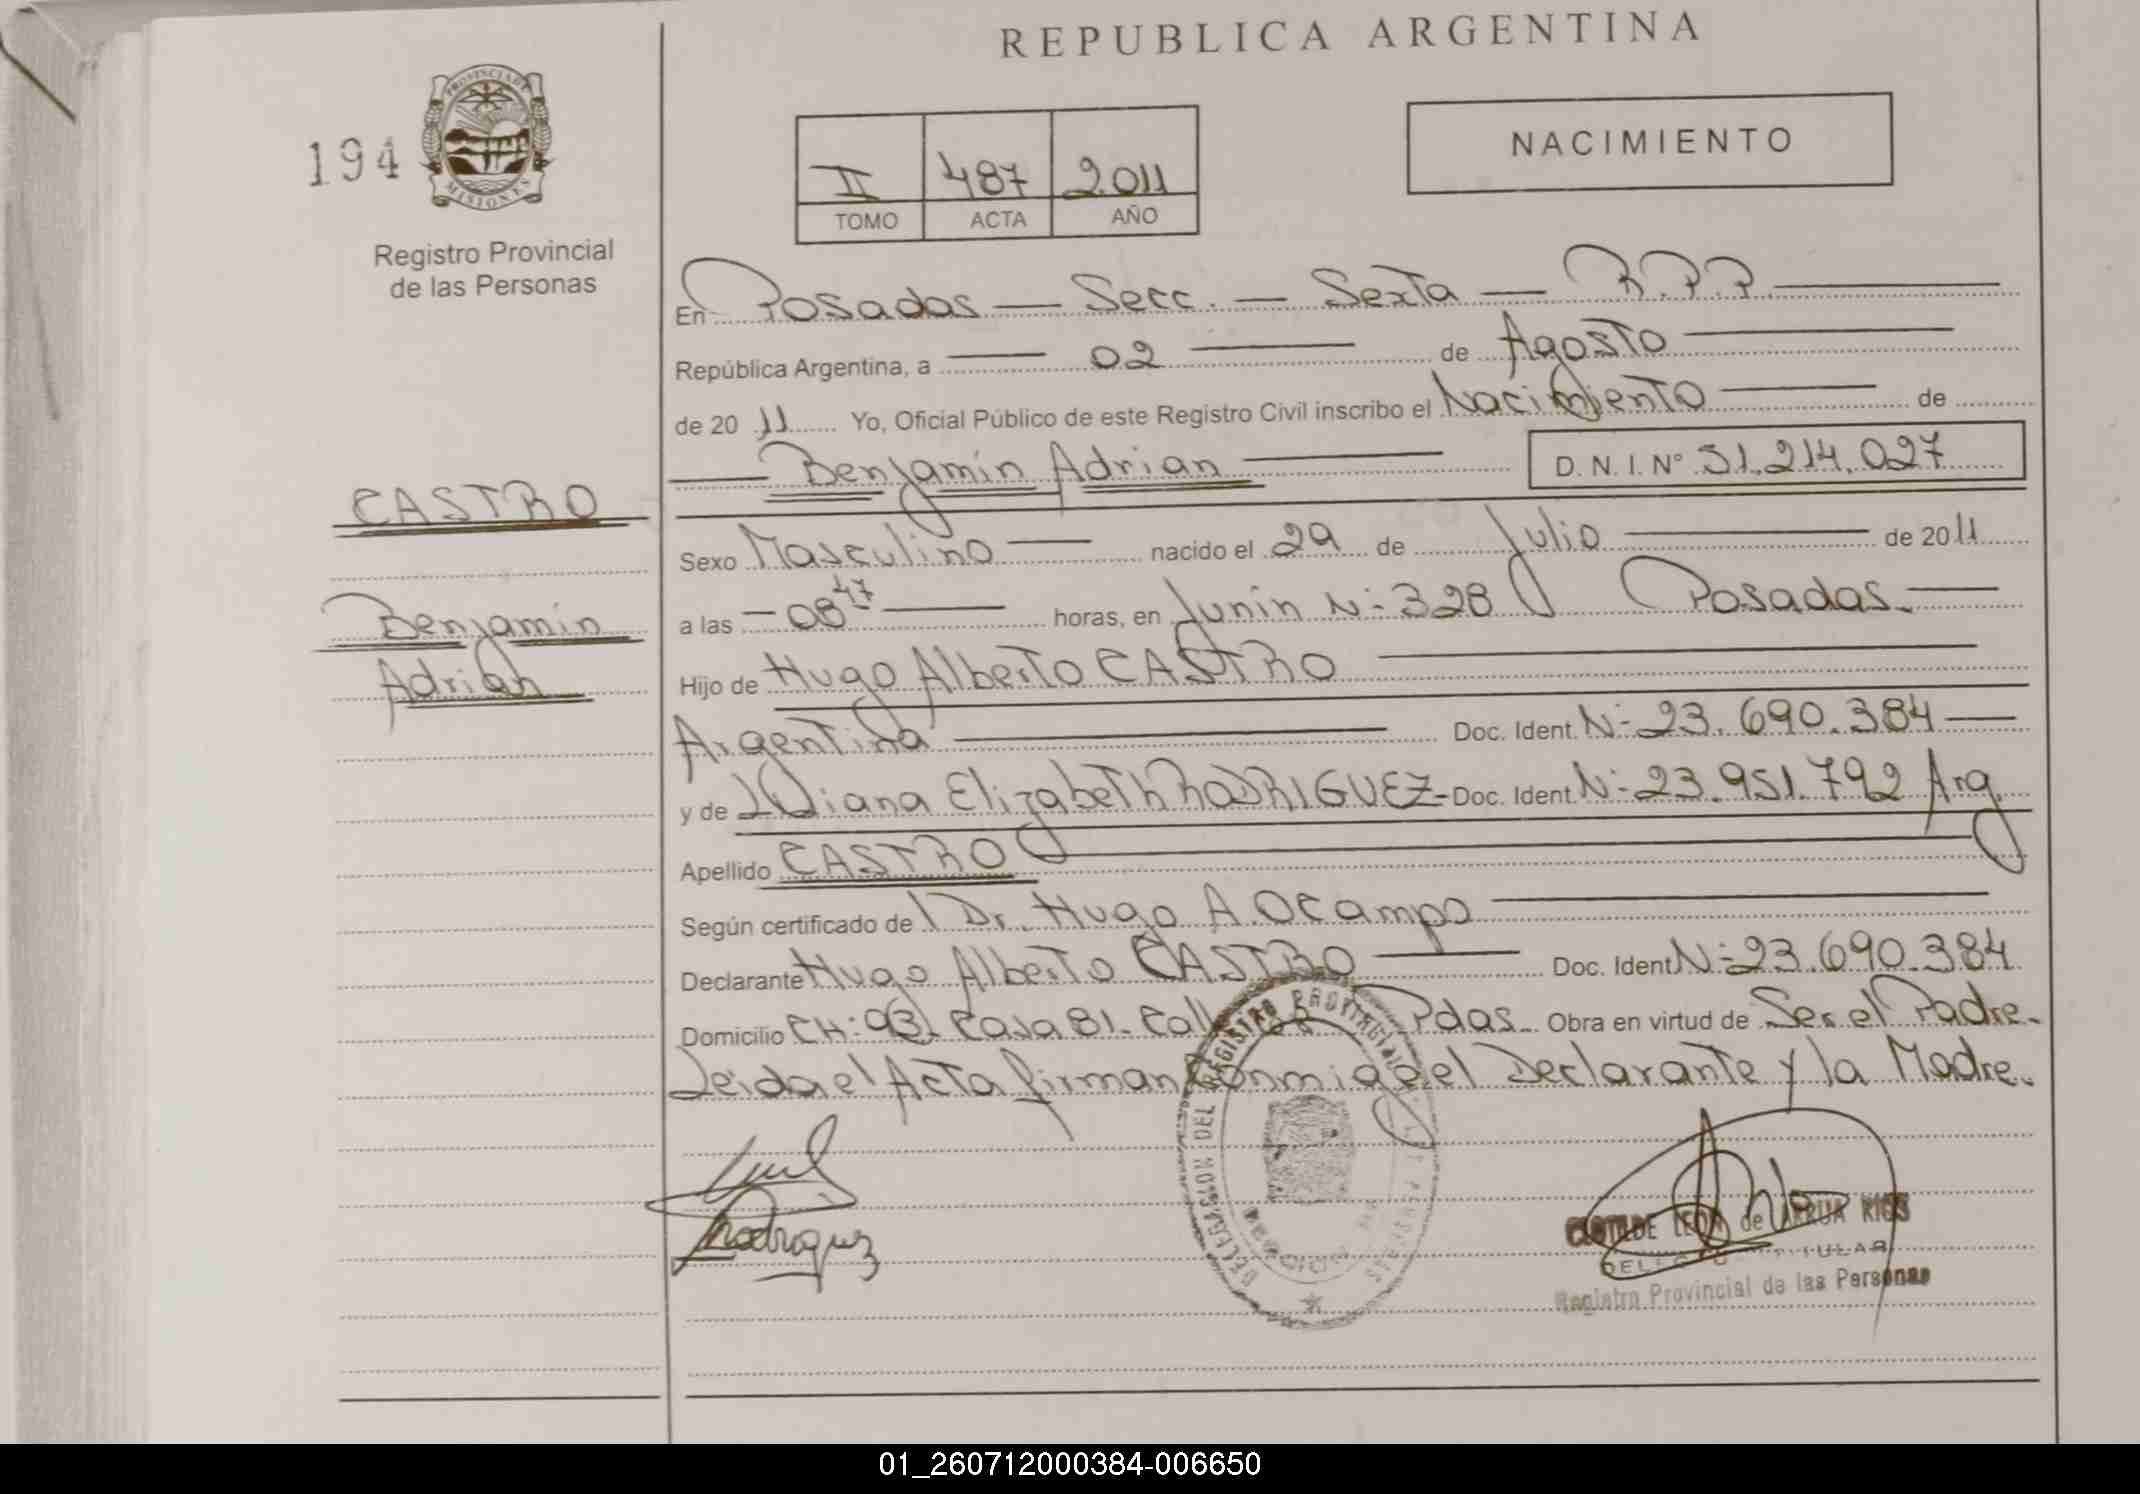 REPUBLICA ARGENTINA
194
PROVINCIA DE
MISIONES
Registro Provincial
de las Personas
II 487 2.011
TOMO ACTA AÑO
NACIMIENTO
En Posadas — Secc. — Sexta — R.P.P.
República Argentina, a — 02 — de Agosto
de 20 11 Yo, Oficial Público de este Registro Civil inscribo el Nacimiento — de
Benjamín Adrian — D. N. I. N° 51.214.027
CASTRO
Benjamín
Adrian
Sexo Masculino — nacido el 29 de Julio — de 2011
a las — 08 47 — horas, en Junín N: 328 Posadas.
Hijo de Hugo Alberto CASTRO
Argentina — Doc. Ident. N: 23.690.384
y de Liliana Elizabeth RODRIGUEZ- Doc. Ident. N: 23.951.792 Arg
Apellido CASTRO
Según certificado de Dr. Hugo A. Ocampo
Declarante Hugo Alberto CASTRO — Doc. Ident N: 23.690.384
Domicilio CH: 93. Casa 81. Pdas. Obra en virtud de Ser el Padre.
Leida el Acta firman Conmigo el Declarante y la Madre.
DELEGACION DEL REGISTRO PROVINCIAL
Rodriguez
CLOTILDE LEON de ARRUA RIOS
TITULAR
Registro Provincial de las Personas
01_260712000384-006650